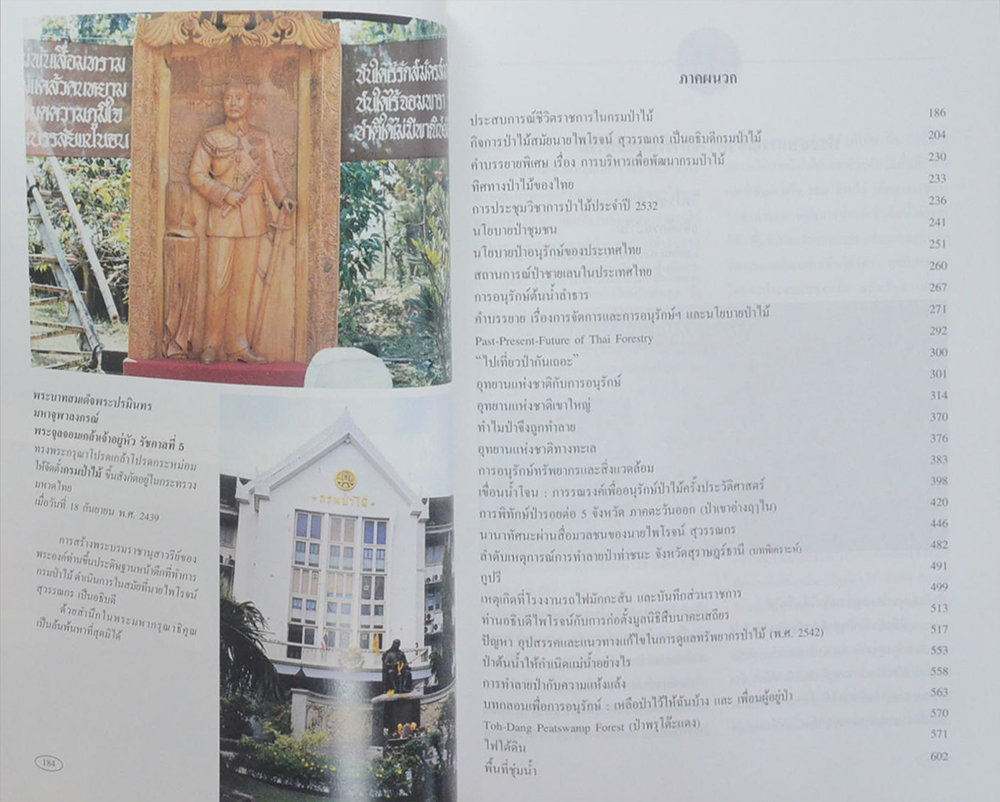 พันเสื่อมทราม
แต่ล้วนคนหยาม
ความภูมิใจ
บรรลัยแน่นอน
ชนใดไร้รัก
ชนใดไร้จอมพารา
ชาติใดไม่มี
พระบาทสมเด็จพระปรมินทร
มหาจุฬาลงกรณ์
พระจุลจอมเกล้าเจ้าอยู่หัว รัชกาลที่ 5
ทรงพระกรุณาโปรดเกล้าโปรดกระหม่อม
ให้จัดตั้งกรมป่าไม้ ขึ้นสังกัดอยู่ในกระทรวง
มหาดไทย
เมื่อวันที่ 18 กันยายน พ.ศ. 2439
การสร้างพระบรมราชานุสาวรีย์ของ
พระองค์ท่านขึ้นประดิษฐานหน้าตึกที่ทำการ
กรมป่าไม้ ดำเนินการในสมัยที่นายไพโรจน์
สุวรรณกร เป็นอธิบดี
ด้วยสำนึกในพระมหากรุณาธิคุณ
เป็นล้นพ้นหาที่สุดมิได้
กรมป่าไม้
184
ภาคผนวก
ประสบการณ์ชีวิตราชการในกรมป่าไม้ 186
กิจการป่าไม้สมัยนายไพโรจน์ สุวรรณกร เป็นอธิบดีกรมป่าไม้ 204
คำบรรยายพิเศษ เรื่อง การบริหารเพื่อพัฒนากรมป่าไม้ 230
ทิศทางป่าไม้ของไทย 233
การประชุมวิชาการป่าไม้ประจำปี 2532 236
นโยบายป่าชุมชน 241
นโยบายป่าอนุรักษ์ของประเทศไทย 251
สถานการณ์ป่าชายเลนในประเทศไทย 260
การอนุรักษ์ต้นน้ำลำธาร 267
คำบรรยาย เรื่องการจัดการและการอนุรักษ์ฯ และนโยบายป่าไม้ 271
Past-Present-Future of Thai Forestry 292
“ไปเที่ยวป่ากันเถอะ” 300
อุทยานแห่งชาติกับการอนุรักษ์ 301
อุทยานแห่งชาติเขาใหญ่ 314
ทำไมป่าจึงถูกทำลาย 370
อุทยานแห่งชาติทางทะเล 376
การอนุรักษ์ทรัพยากรและสิ่งแวดล้อม 383
เขื่อนน้ำโจน : การรณรงค์เพื่ออนุรักษ์ป่าไม้ครั้งประวัติศาสตร์ 398
การพิทักษ์ป่ารอยต่อ 5 จังหวัด ภาคตะวันออก (ป่าเขาอ่างฤาใน) 420
นานาทัศนะผ่านสื่อมวลชนของนายไพโรจน์ สุวรรณกร 446
ลำดับเหตุการณ์การทำลายป่าท่าชนะ จังหวัดสุราษฎร์ธานี (บทพิเคราะห์) 482
กูปรี 491
เหตุเกิดที่โรงงานรถไฟมักกะสัน และบันทึกส่วนราชการ 499
ท่านอธิบดีไพโรจน์กับการก่อตั้งมูลนิธิสืบนาคะเสถียร 513
ปัญหา อุปสรรคและแนวทางแก้ไขในการดูแลทรัพยากรป่าไม้ (พ.ศ. 2542) 517
ป่าต้นน้ำให้กำเนิดแม่น้ำอย่างไร 553
การทำลายป่ากับความแห้งแล้ง 558
บทกลอนเพื่อการอนุรักษ์ : เหลือป่าไว้ให้ฉันบ้าง และ เพื่อนผู้อยู่ป่า 563
Toh-Dang Peatswamp Forest (ป่าพรุโต๊ะแดง) 570
ไฟใต้ดิน 571
พื้นที่ชุ่มน้ำ 602